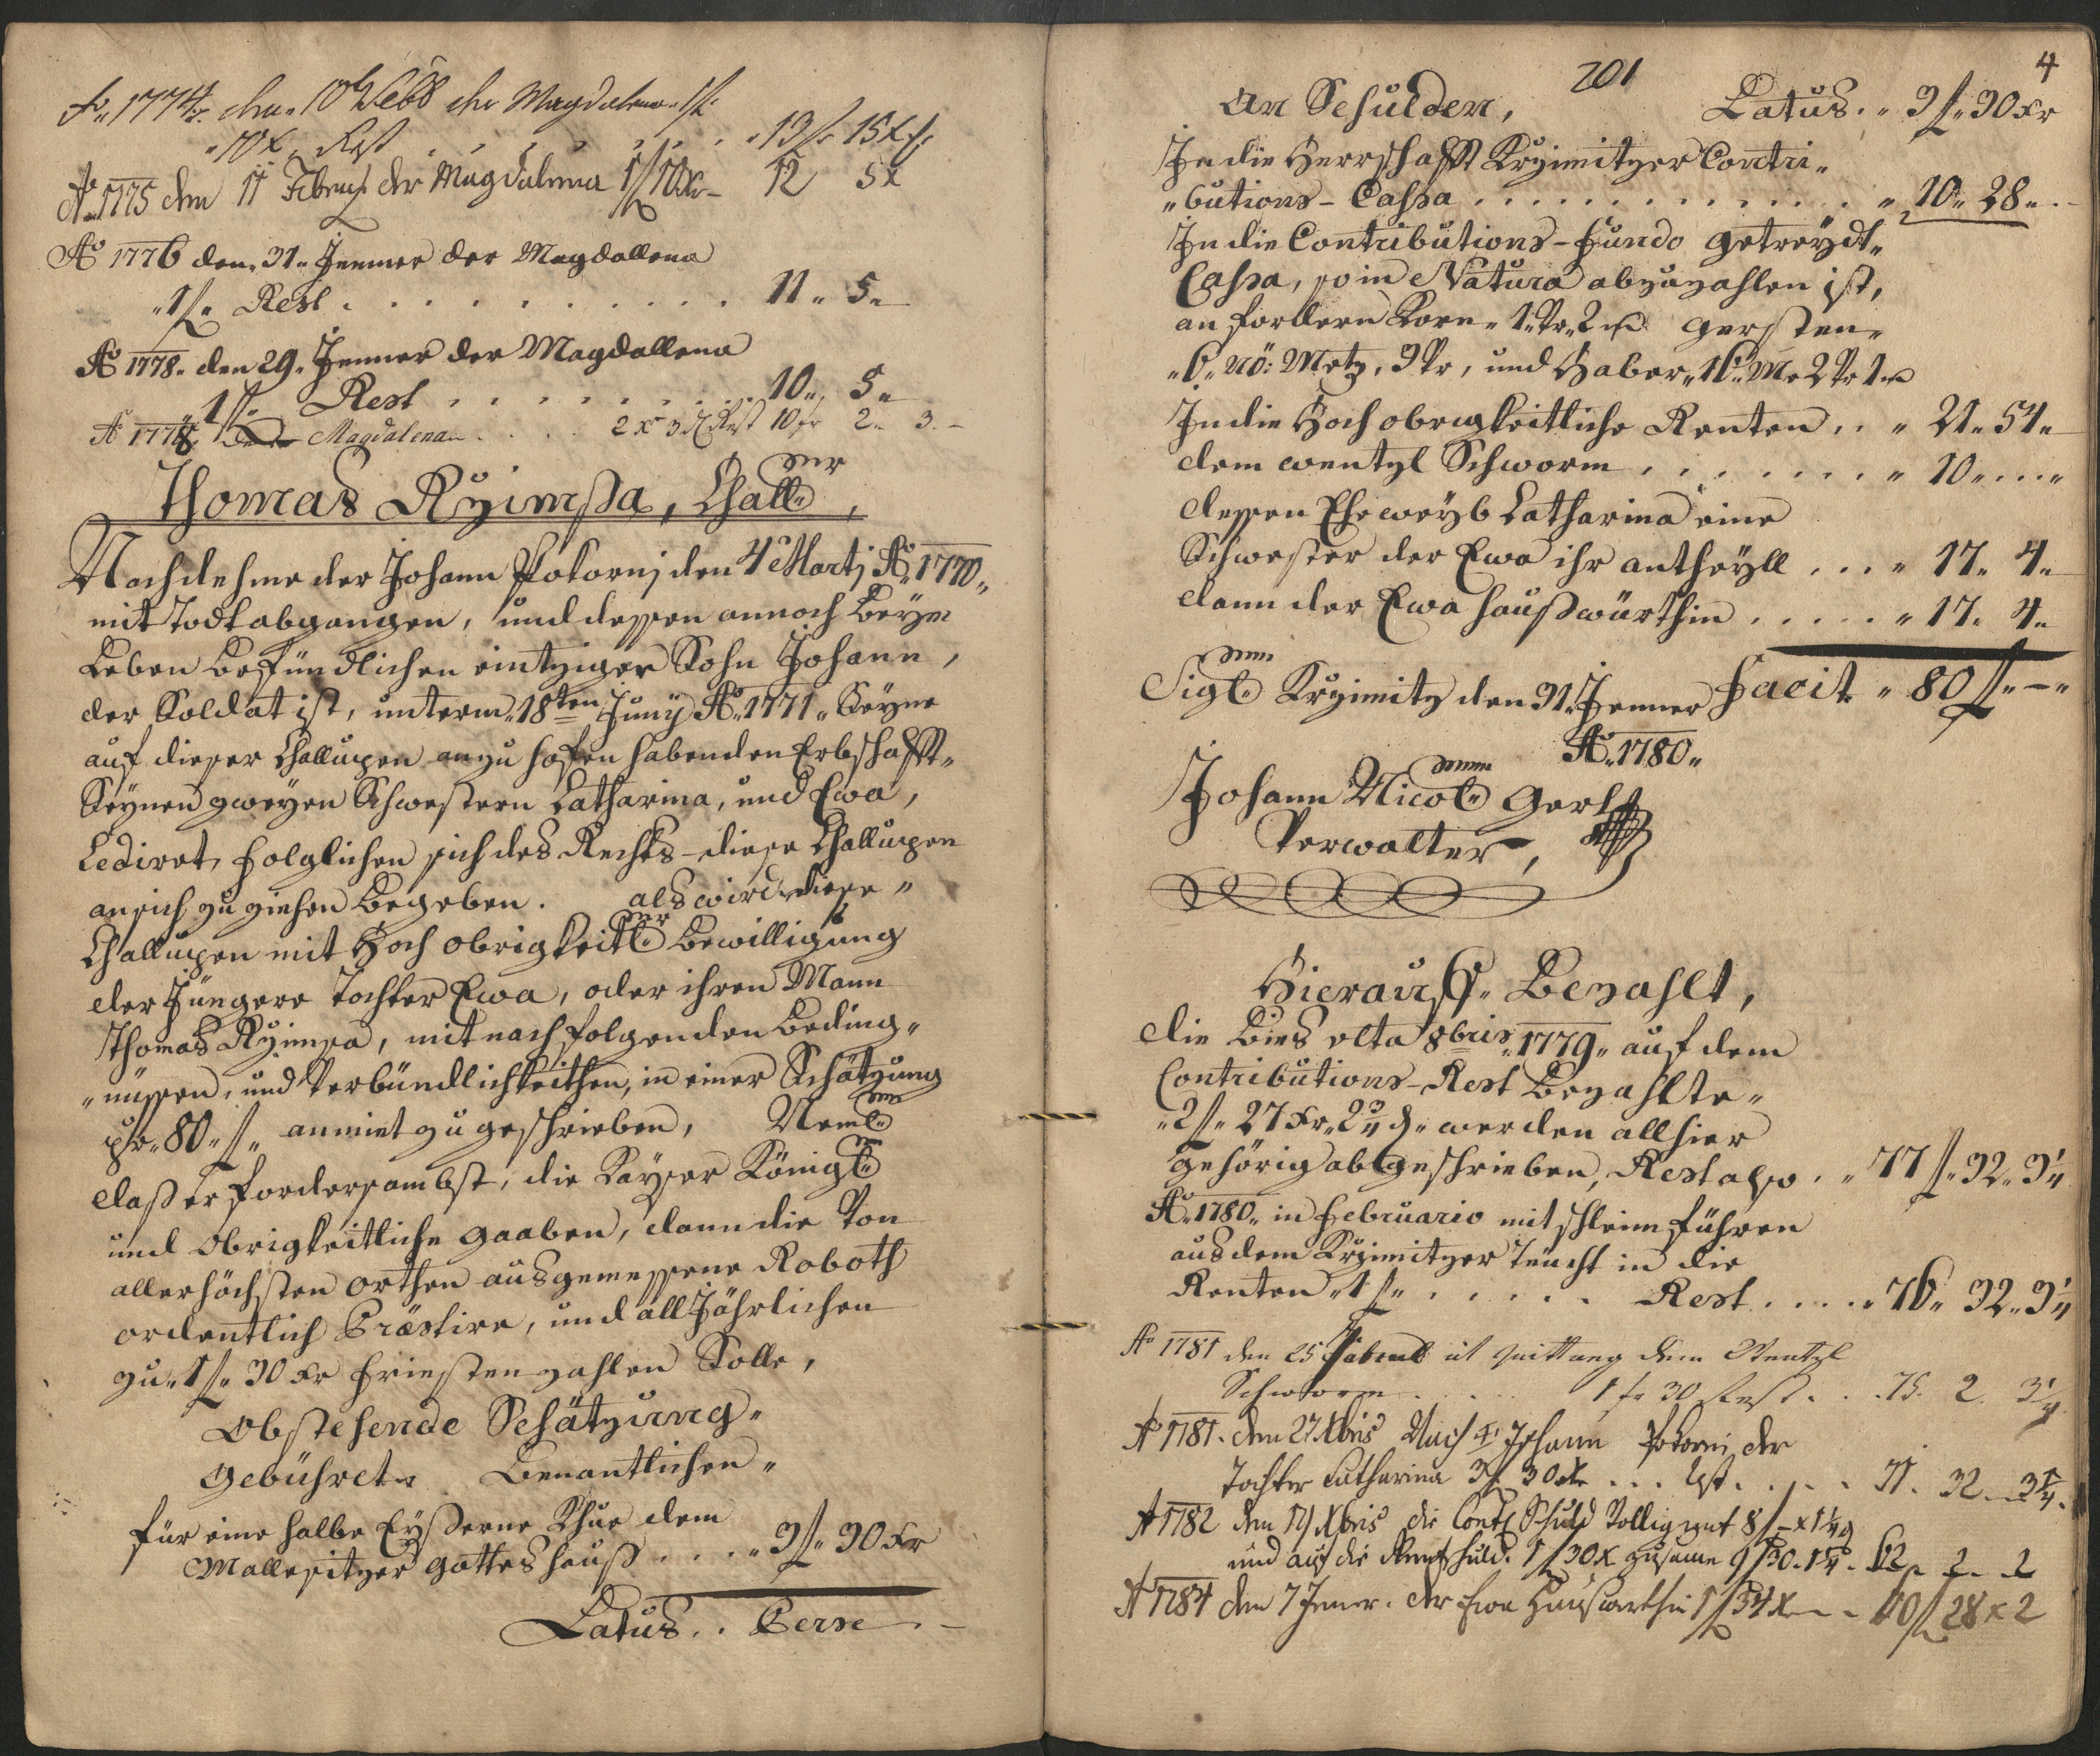 Ao 1774 den 10 Febr der Magdalena 1 f
10 x Rest . . . . . . . 13 f 15 x
Ao 1775 den 11 Febru der Magdalena 1 f 10 x 12 5 x
Ao 1776 den 31 Jenner der Magdallena
1 f Rest . . . . . . . . . . 11 „ 5 „
Ao 1778 „ den 29 „ Jenner der Magdallena
„ 1 f „ Rest . . . . . . . . 10 „ 5 „
Ao 1778 Magdalena . . . . 2 x 3 d Rest 10 fr 2 „ 3 . –
Thomas Rzimsa, Challer ,
Nachdehme der Johann Pokornj den 4 Martj Ao 1770 „
mit Todt abgangen, und dessen annoch beÿm
Leben befündlichen eintziger Sohn Johann,
der Soldat ist, unterm „ 18ten Junÿ Ao 1771 „ Seÿne
auf dieser Challupen anzu hofen habenden Erbschafft „
Seÿnen zweÿen Schwestern Catharina, und Ewa,
Cediret, folglichen sich des Rechts – diese Challupen
an sich zu ziehen begeben. als wird diese „
Challupen mit Hoch obrigkeitler Bewilligung
der Jüngere Tochter Ewa, oder ihren Mann
Thomas Rzimsa, mit nachfolgenden beding „
„ nüssen, und Verbündlichkeithen, in einer Schätzung
pr „ 80 „ f „ anmiet zu geschrieben, Nemlen
daß er fordersambst, die Kaÿser Königlen
und Obrigkeitliche gaaben, dann die Von
allerhöchsten orthen ausgemessene Roboth
ordentlich Præstire, und all Jährlichen
zu „ 1 f „ 30 xr friesten zahlen Solle,
Obstehende Schätzung „
Gebühret „ Benantlichen „
für eine halbe Eÿßerne Khue dem
Mallesitzer gotteshauß . . . „ 3 f „ 30 xr
Latus . . Perse . –
201
4
An Schulden, Latus . „ 3 f „ 30 xr
In die Herrschafft Krzimitzer Contri „
„ butions – Cassa . . . . . . . . . . . . „ 10 „ 28 „ . –
In die Contributions – Fundo getreÿdt „
Cassa, so in Natura abzuzahlen ist,
an fordern Korn „ 1 „ Vr „ 2 gersten „
„ 6 „ nö: Metz, 3 Vr, und Haber „ 16 „ Me 2 Vr 1
In die Hoch obrigkeitliche Renten . . „ 21 „ 54 „
dem wentzl Schworm . . . . . . . . „ 10 „ . . . „
dessen Eheweÿb Catharina eine
Schwester der Ewa ihr antheÿll . . . „ 17 „ 4 „
dann der Ewa haußwürthin . . . . . „ 17 „ 4 „
Facit „ 80 f „ – „
Siglen Krzimitz den 31 „ Jenner
Ao 1780 „
Johann Nicol Gerl
Verwalter,
Hierauf „ Bezahlt,
die bies ulta 8bris 1779 „ auf dem
Contributions – Rest bezahlte „
„ 2 f „ 27 xr „ 2 3/4 d „ werden allhier
gehörig abgeschrieben, Rest also . „ 77 f „ 32 „ 3 1/4
Ao 1780 „ in Februario mit schleim führen
aus dem Krzimitzer teücht in die
Renten „ 1 f „ . . . . . Rest . . . . „ 76 „ 32 „ 3 1/4
Ao 1781 den 25 ut quittung dem Wentzl
Schworm . . . . 1 f 30 Rest . . . 75 . 2 . 3 1/4
Ao 1781 . den 27 Xbris Nach Johann Pokorni der
Tochter Catharina 3 f 30 x . . . Rest . . . . 71 . 32 . 3 1/4 .
Ao 1782 den Xbris die Cont Schuld 8 f – x 1 1/4 d
und auf die Rentschuld 1 f 30 x zusame 9 f 30 . 1 1/4 . 62 „ 2 „ 2
Ao 1784 den 7 Jener . der Ewa Hauswirthin 1 f 34 x – – 60 f 28 x 2